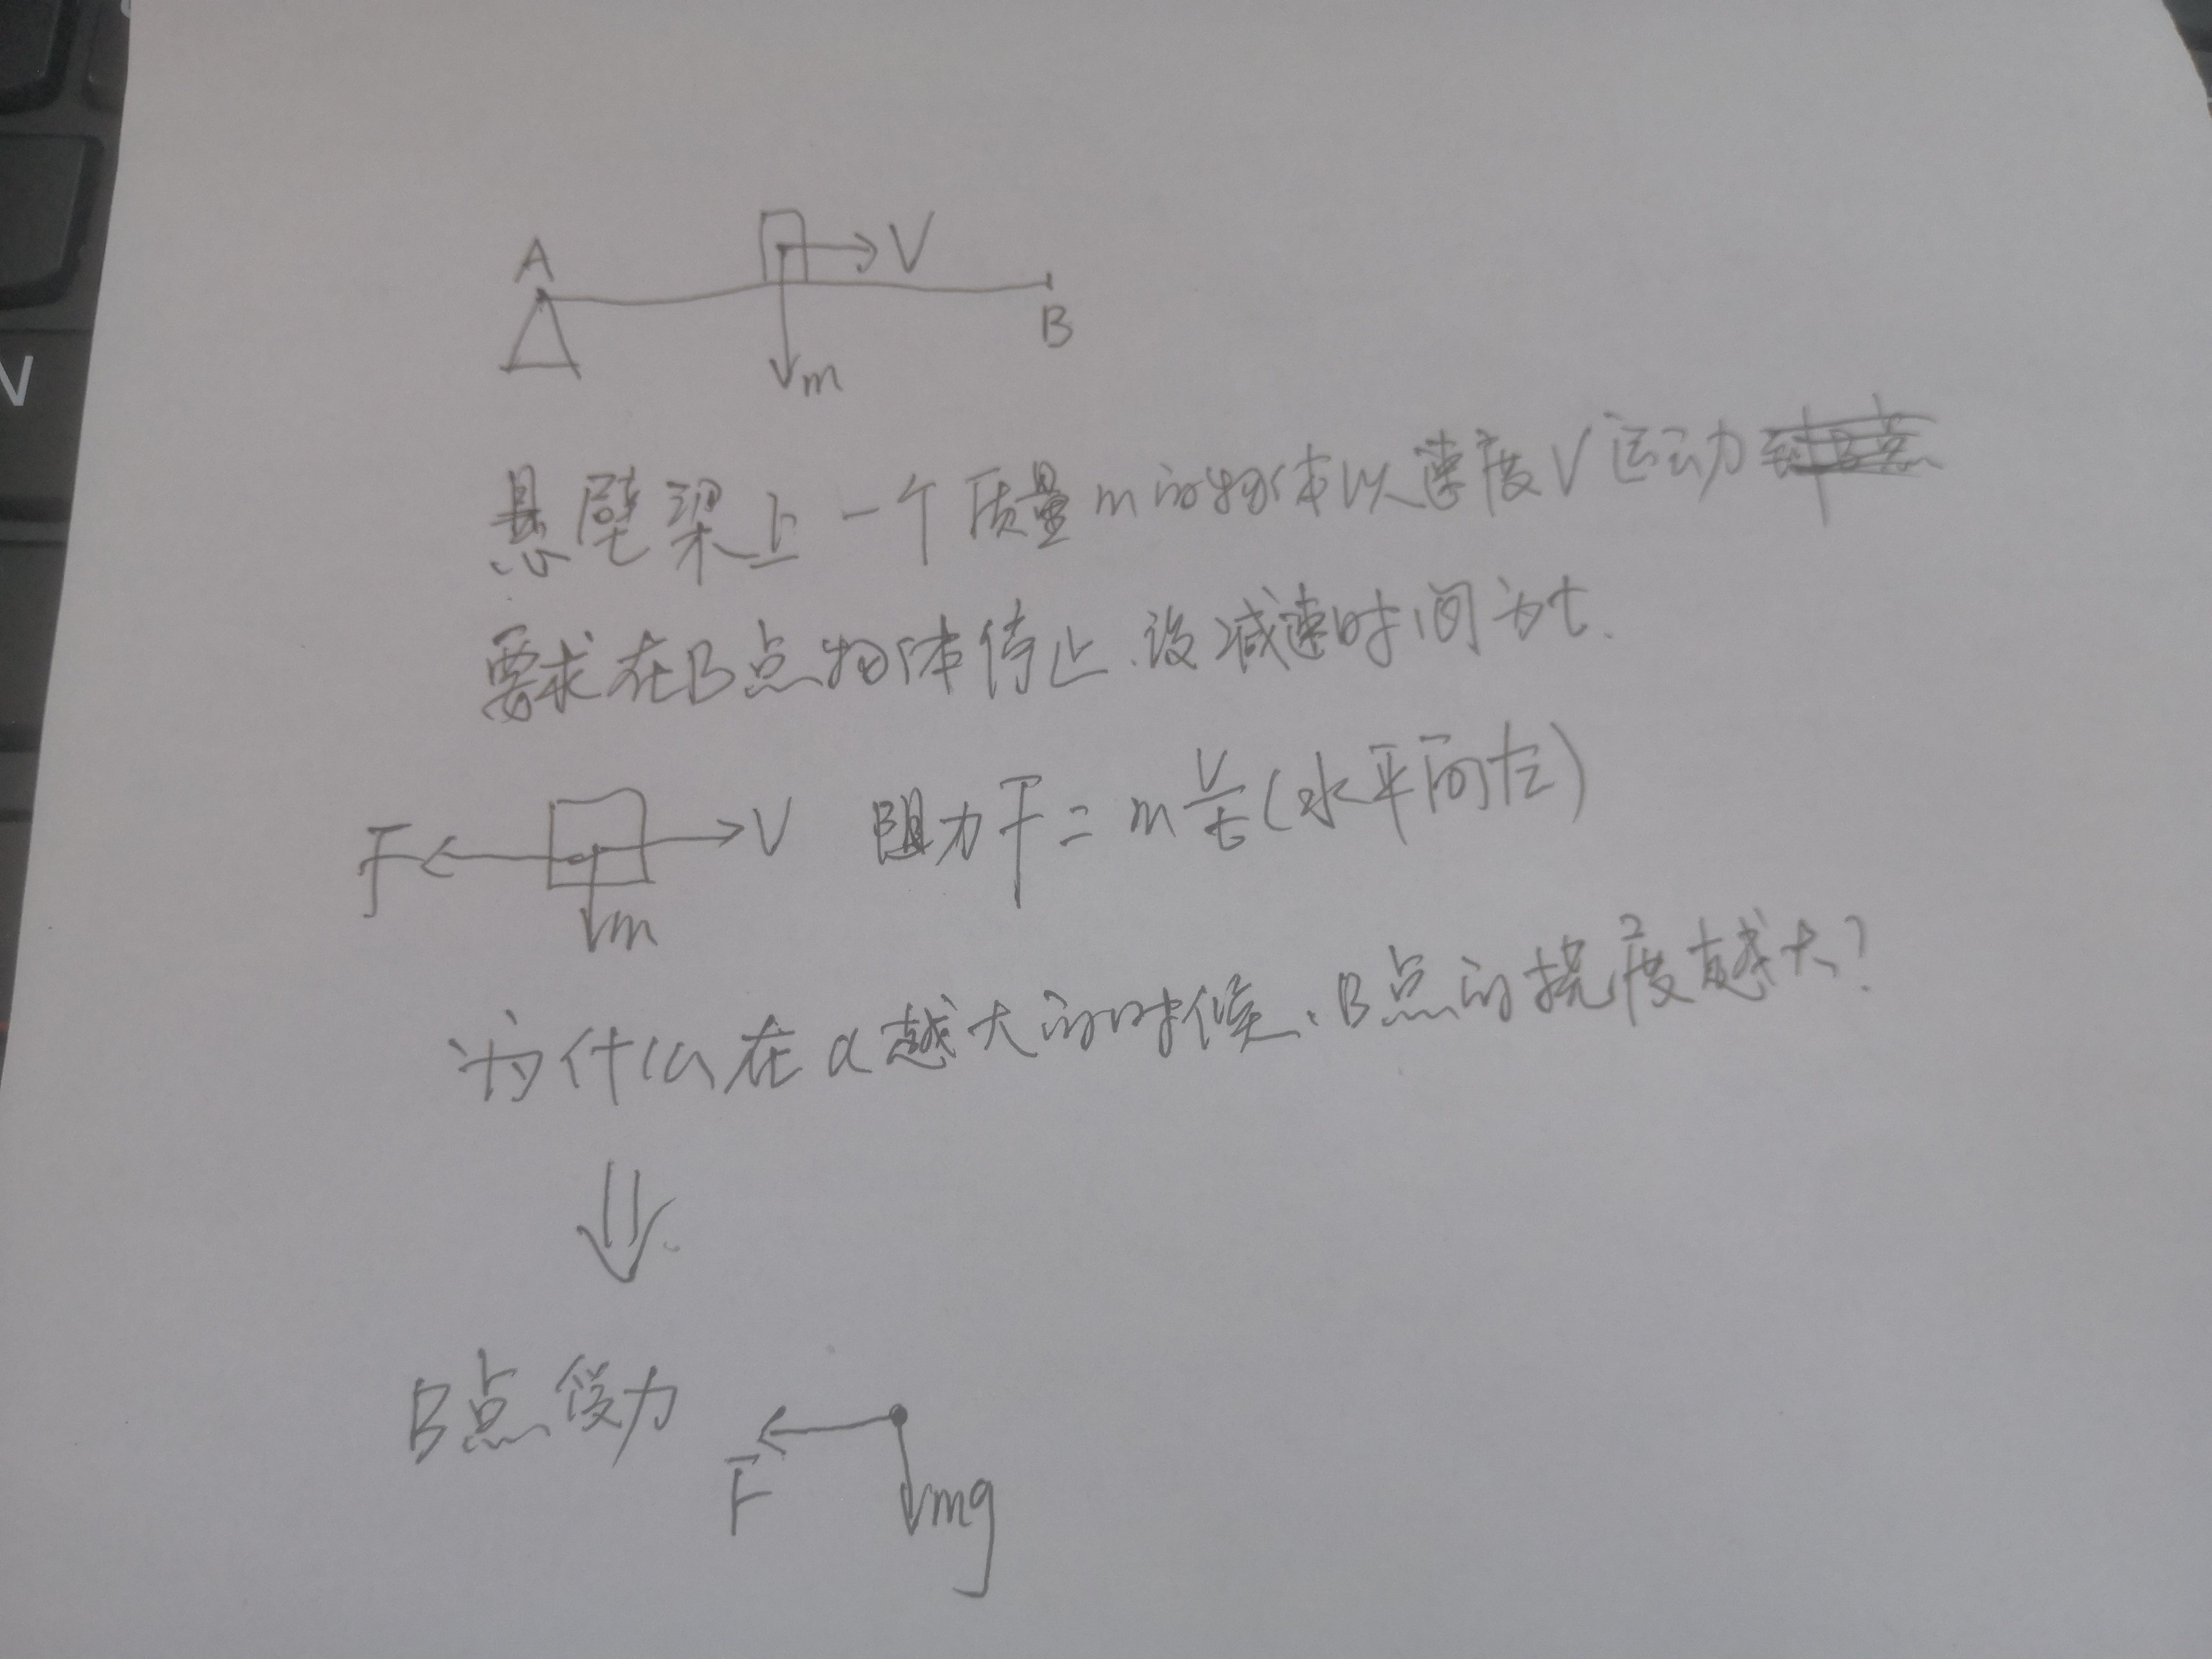 A
V
B
m
悬壁梁上一个质量m的物体以速度V运动
要求在B点物体停止.设减速时间为t.
F V 阻力F=m\frac{V}{t}(水平向左)
m
为什么在a越大的时候、B点的挠度越大?
B点受力
F
mg
N